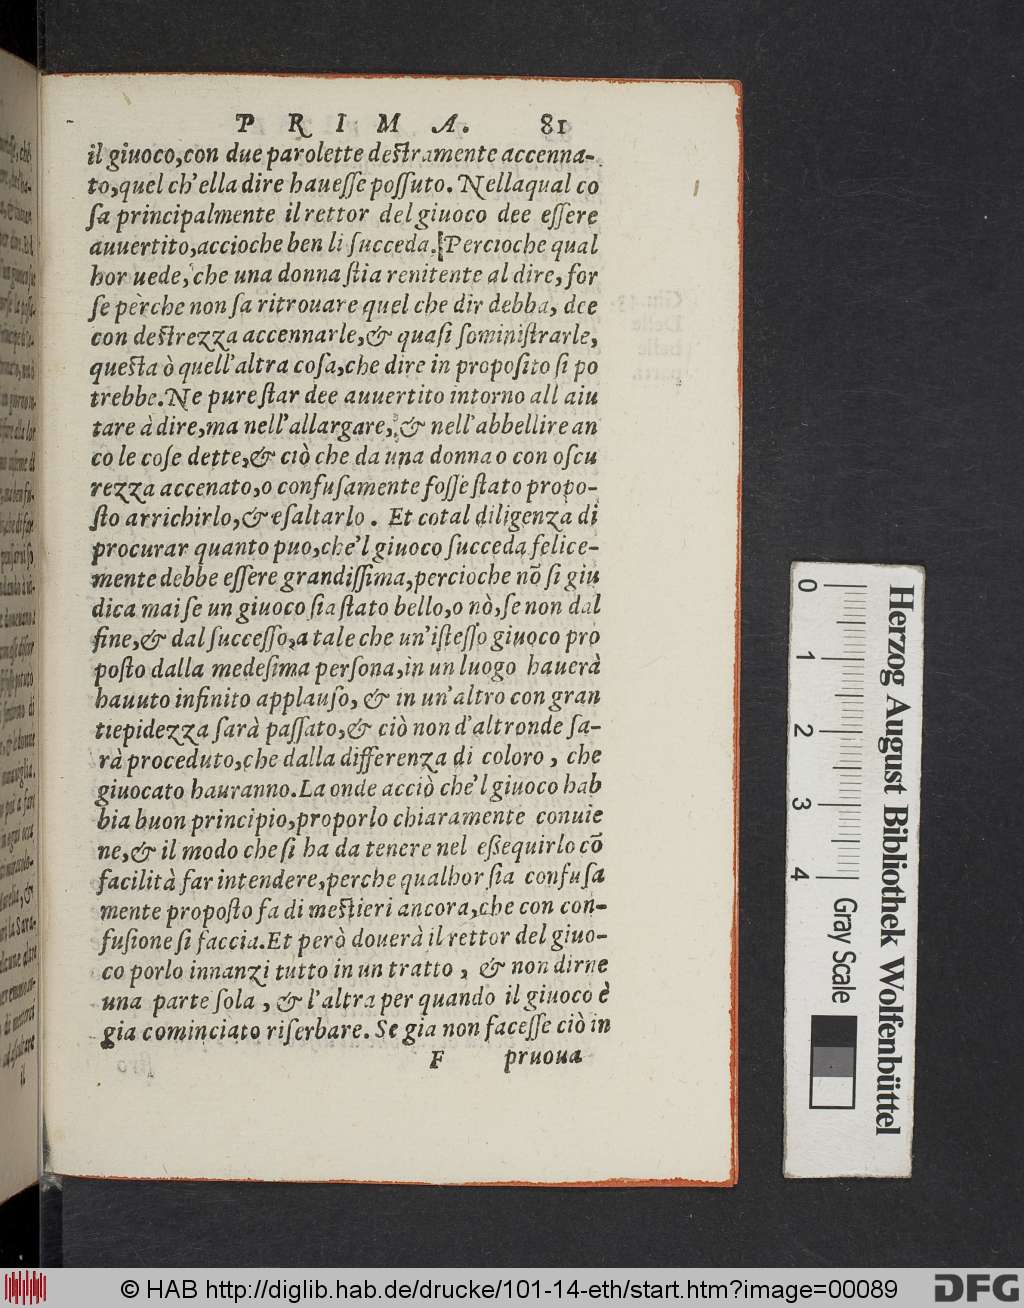 PRIMA. 81
il giuoco,con due parolette destramente accenna-
to,quel ch'ella dire hauesse possuto. Nellaqual co
sa principalmente il rettor del giuoco dee essere
auuertito,accioche ben li succeda. Percioche qual
hor uede, che una donna stia renitente al dire, for
se perche non sa ritrouare quel che dir debba, dee
con destrezza accennarle,& quasi soministrarle,
questa ò quell'altra cosa,che dire in proposito si po
trebbe. Ne pure star dee auuertito intorno all aiu
tare à dire,ma nell'allargare, & nell'abbellire an
co le cose dette,& ciò che da una donna o con oscu
rezza accenato,o confusamente fosse stato propo-
sto arrichirlo,& esaltarlo . Et cotal diligenza di
procurar quanto puo,che'l giuoco succeda felice-
mente debbe essere grandissima,percioche nõ si giu
dica mai se un giuoco sia stato bello,o nò,se non dal
fine,& dal successo,a tale che un'istesso giuoco pro
posto dalla medesima persona,in un luogo hauerà
hauuto infinito applauso, & in un'altro con gran
tiepidezza sarà passato,& ciò non d'altronde sa-
rà proceduto,che dalla differenza di coloro , che
giuocato hauranno.La onde acciò che'l giuoco hab
bia buon principio,proporlo chiaramente conuie
ne,& il modo che si ha da tenere nel essequirlo cõ
facilità far intendere,perche qualhor sia confusa
mente proposto fa di mestieri ancora,che con con-
fusione si faccia.Et però douerà il rettor del giuo-
co porlo innanzi tutto in un tratto , & non dirne
una parte sola , & l'altra per quando il giuoco è
gia cominciato riserbare. Se gia non facesse ciò in
F pruoua
0 1 2 3 4
Gray Scale
Herzog August Bibliothek Wolfenbüttel
© HAB http://diglib.hab.de/drucke/101-14-eth/start.htm?image=00089
DFG